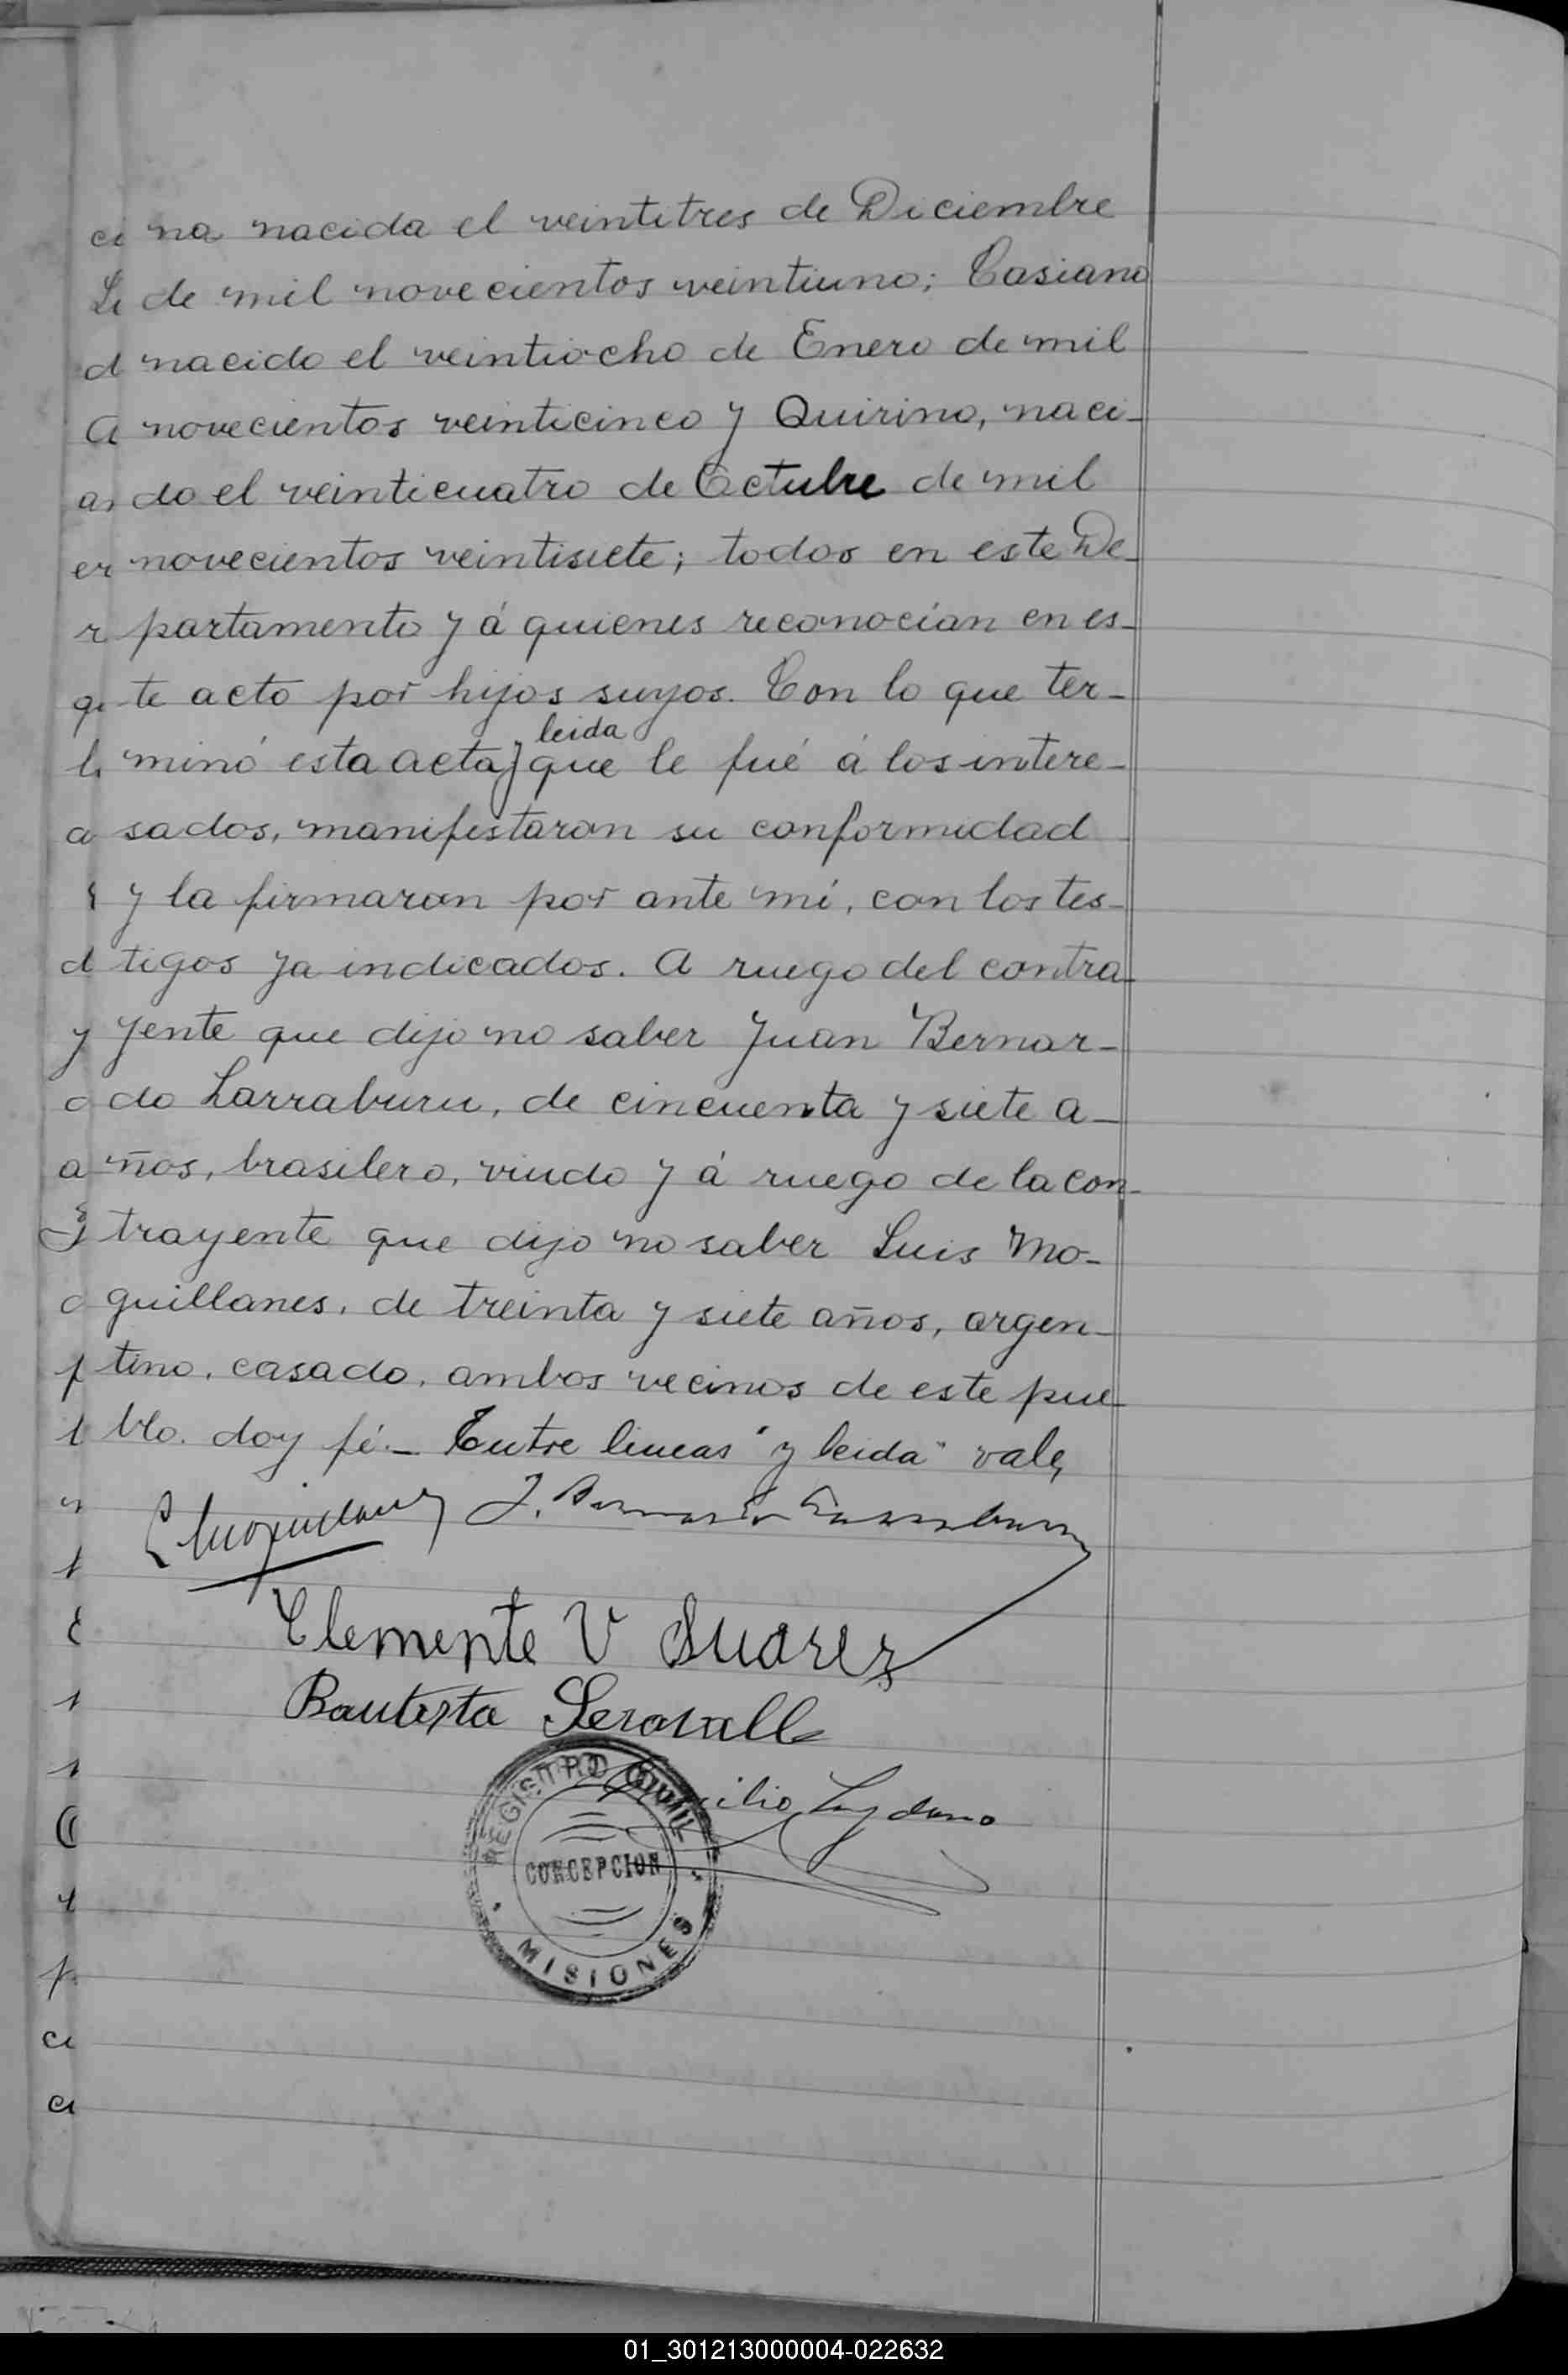 na nacida el veintitres de Diciembre
de mil novecientos veintiuno; Casiano
nacido el veintiocho de Enero de mil
novecientos veinticinco y Quirino, naci-
do el veinticuatro de Octubre de mil
novecientos veintisiete; todos en este De-
partamento y á quienes reconocían en es-
te acto por hijos suyos. Con lo que ter-
minó esta acta y leida que le fué á los intere-
sados, manifestaron su conformidad
y la firmaron por ante mí, con los tes-
tigos ya indicados. A ruego del contra-
yente que dijo no saber Juan Bernar-
do Larraburu, de cincuenta y siete a-
ños, brasilero, viudo y á ruego de la con-
trayente que dijo no saber Luis Mo-
quillanes, de treinta y siete años, argen-
tino, casado, ambos vecinos de este pue-
blo. doy fé.- Entre lineas "y leida" vale,
J. Bernardo Larraburu
Clemente V Suarez
Bautista
REGISTRO CIVIL
CONCEPCION
MISIONES
01_301213000004-022632